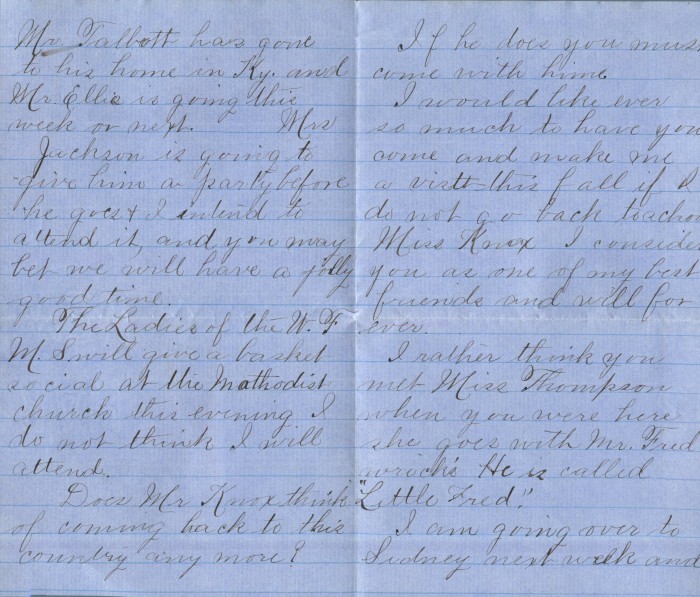 Mr. Talbott has gone
to his home in Ky. and
Mr. Ellis is going this
week or next. Mrs
Jackson is going to
give him a party before
he goes & I intend to
attend it, and you may
bet we will have a jolly
good time.
The Ladies of the W. F.
M. S. will give a basket
social at the Mathodist
church this evening I
do not think I will
attend.
Does Mr Knox think
of coming back to this
country any more?
If he does you mus
come with him.
I would like ever
so much to have you
come and make me
a visit this fall if I
do not go back to schoo
Miss Knox I conside
you as one of my best
friends and will for
ever.
I rather think you
met Miss Thompson
when you were here
she goes with Mr. Fred
He is called
"Little Fred".
I am going over to
Sidney next week and